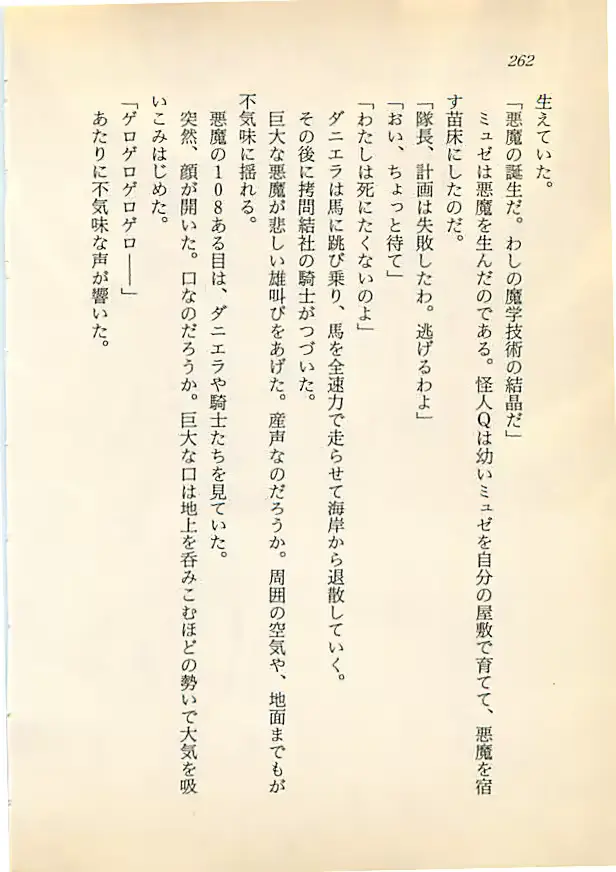 262
生えていた。
「悪魔の誕生だ。わしの魔学技術の結晶だ」
ミュゼは悪魔を生んだのである。怪人Qは幼いミュゼを自分の屋敷で育てて、悪魔を宿
す苗床にしたのだ。
「隊長、計画は失敗したわ。逃げるわよ」
「おい、ちょっと待て」
「わたしは死にたくないのよ」
ダニエラは馬に跳び乗り、馬を全速力で走らせて海岸から退散していく。
その後に拷問結社の騎士がつづいた。
巨大な悪魔が悲しい雄叫びをあげた。産声なのだろうか。周囲の空気や、地面までもが
不気味に揺れる。
悪魔の108ある目は、ダニエラや騎士たちを見ていた。
突然、顔が開いた。口なのだろうか。巨大な口は地上を呑みこむほどの勢いで大気を吸
いこみはじめた。
「ゲロゲロゲロゲロ――」
あたりに不気味な声が響いた。